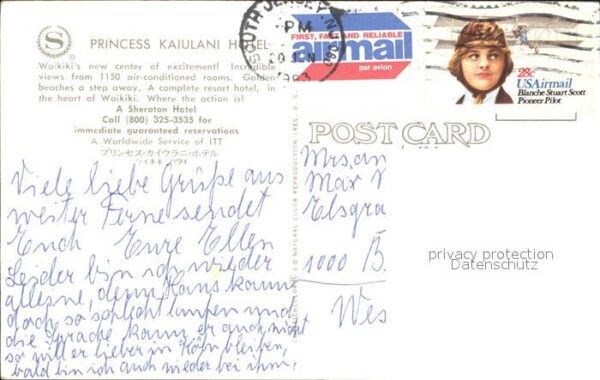 S
PRINCESS KAIULANI HOTEL
Waikiki's new center of excitement! Incredible
views from 1150 air-conditioned rooms. Golden
beaches a step away. A complete resort hotel, in
the heart of Waikiki. Where the action is!
A Sheraton Hotel
Call (800) 325-3535 for
immediate guaranteed reservations
A Worldwide Service of ITT
プリンセス・カイウラニ・ホテル
ワイキキ ハワイ
Viele liebe Grüße aus
weiter Ferne sendet
Euch Eure Ellen
Leider bin ich wieder
alleine, denn Hans kann
doch so schlecht laufen und
die Sprache kann er auch nicht
so will er lieber in Köln bleiben,
bald bin ich auch wieder bei ihm.
SOUTH JERSEY NJ
PM
20 JUN
1983
FIRST, FAST AND RELIABLE
airmail
par avion
28c
USAirmail
Blanche Stuart Scott
Pioneer Pilot
POST CARD
NATURAL COLOR REPRODUCTION REG. U.S.
Mrs. an
Max
Elsgra
1000 B.
Wes
privacy protection
Datenschutz